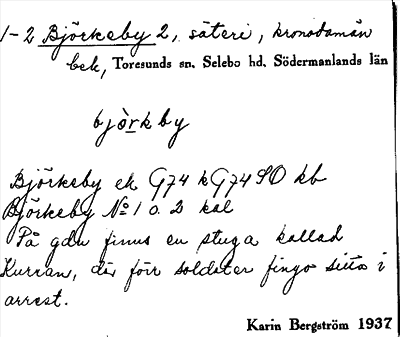 1-2 Björkeby 2, säteri, kronodomän
bek, Toresunds sn. Selebo hd. Södermanlands län
bjòrkby
Björkeby ek G74 k G74 SO kb
Björkeby № 1 o. 2 kal
På gdn finns en stuga kallad
Kurran, där förr soldater fingo sitta i
arrest.
Karin Bergström 1937